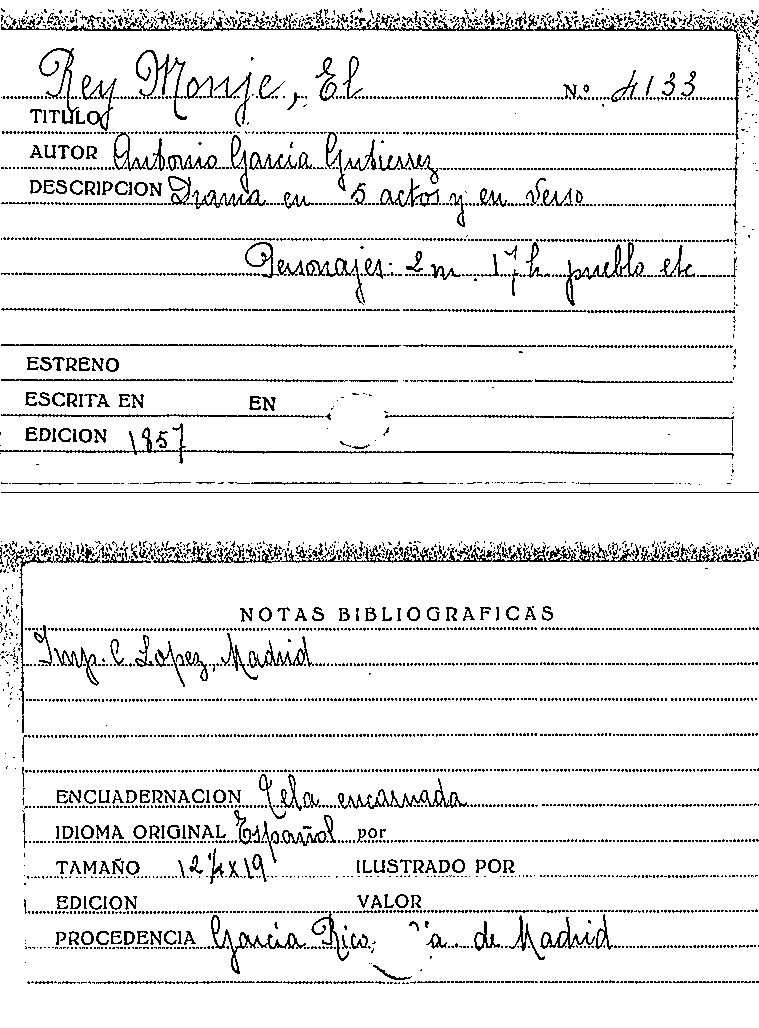 Rey Monje, El Nº 4133
TITULO
AUTOR Antonio García Gutierrez
DESCRIPCION Drama en 5 actos y en verso
Personajes: 2 m. 17 h. pueblo etc
ESTRENO
ESCRITA EN EN
EDICION 1857
NOTAS BIBLIOGRAFICAS
Imp. C. Lopez, Madrid
ENCUADERNACION Tela encarnada
IDIOMA ORIGINAL Español por
TAMAÑO 12 ½ x 19 ILUSTRADO POR
EDICION VALOR
PROCEDENCIA García Rico, de Madrid